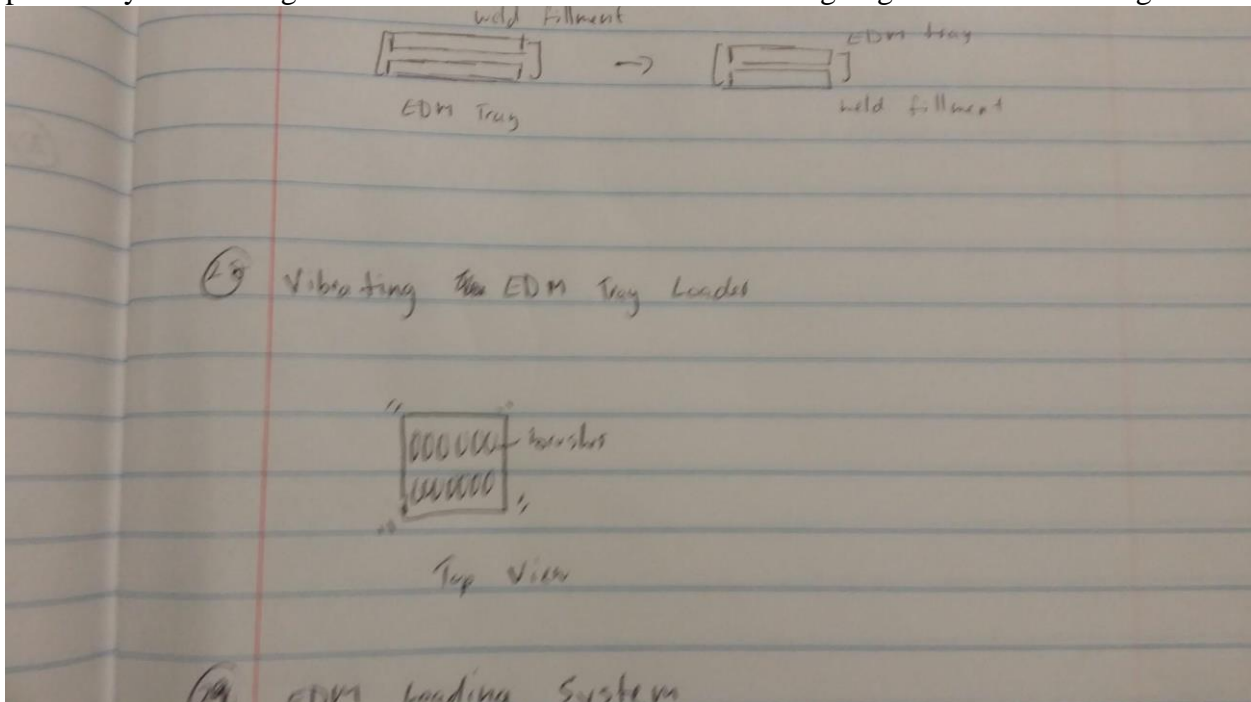 weld fillment
EDM tray
EDM Tray
weld fillment
Vibrating EDM Tray Loader
Top View
EDM Loading System